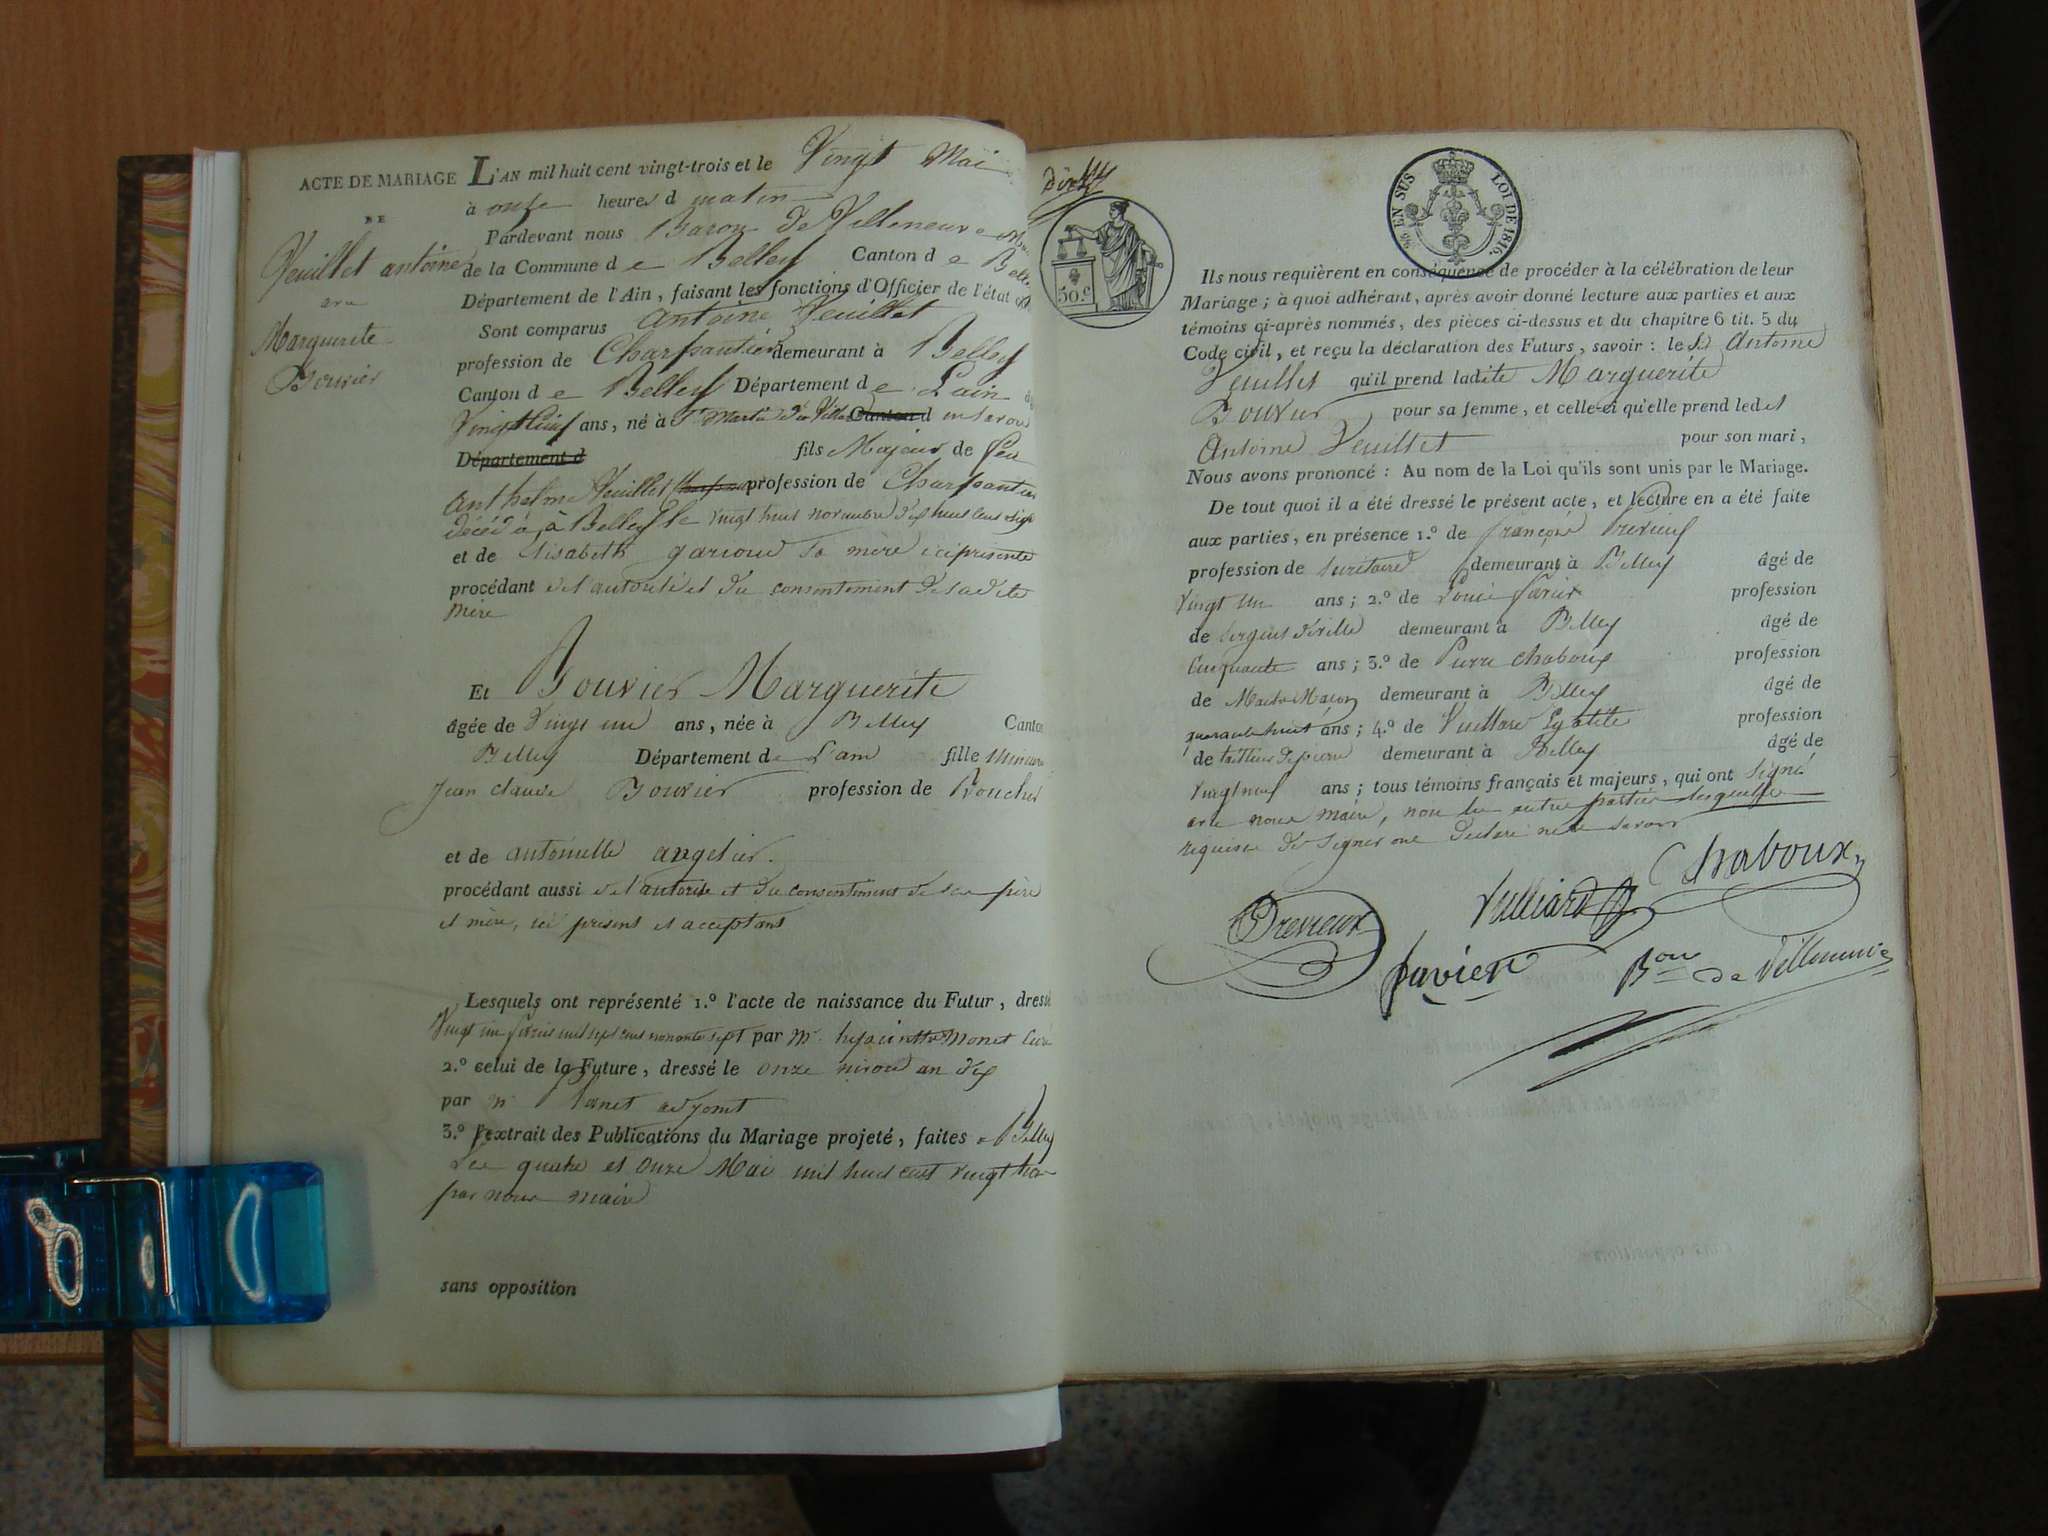 ACTE DE MARIAGE
DE
Feuillet antoine
Marguerite
Bouvier
L'AN mil huit cent vingt-trois et le Vingt Mai
à onze heures d matin
Pardevant nous Baron De Villeneuve
de la Commune d e Belley Canton d e
Département de l'Ain, faisant les fonctions d'Officier de l'état
Sont comparus Antoine Feuillet
profession de Charpantier demeurant à Belley
Canton d e Belley Département de Lain
ans, né à Canton d
Département d fils Majeur de feu
Anthelme Feuillet profession de Charpantier
décédé à Belley le vingt huit novembre
et de Elisabeth sa mère ici présente
procédant de l'autorité et du consentement de sadite
Mère
Et Bouvier Marguerite
âgée de Vingt un ans, née à Belley Canton
Belley Département de Lain fille Mineure
Jean Claude Bouvier profession de Boucher
et de antoinette angelier.
procédant aussi de l'autorité et du consentement de ses père
et mère, ici présent et acceptant
Lesquels ont représenté 1.º l'acte de naissance du Futur, dressé
par Mr. hyacinthe Monet
2.º celui de la Future, dressé le onze nivose an dix
par m adjoint
3.º l'extrait des Publications du Mariage projeté, faites a Belley
Les quatre et onze Mai mil huit cent vingt trois
par nous maire
sans opposition
EN SUS LOI DE 1816.
50.c
Ils nous requièrent en conséquence de procéder à la célébration de leur
Mariage; à quoi adhérant, après avoir donné lecture aux parties et aux
témoins ci-après nommés, des pièces ci-dessus et du chapitre 6 tit. 5 du
Code civil, et reçu la déclaration des Futurs, savoir: le dt Antoine
Feuillet qu'il prend ladite Marguerite
Bouvier pour sa femme, et celle-ci qu'elle prend ledit
Antoine Feuillet pour son mari,
Nous avons prononcé: Au nom de la Loi qu'ils sont unis par le Mariage.
De tout quoi il a été dressé le présent acte, et lecture en a été faite
aux parties, en présence 1.º de françois Previeux
profession de Secrétaire demeurant à Belley âgé de
Vingt un ans; 2.º de Louis profession
de Sergent de ville demeurant à Belley âgé de
Cinquante ans; 3.º de Pierre Chaboux profession
de Maitre Maçon demeurant à Belley âgé de
quarante huit ans; 4.º de profession
de tailleur de pierre demeurant à Belley âgé de
Vingt neuf ans; tous témoins français et majeurs, qui ont signé
avec nous Maire, non les autres parties lesquelles
requises de signer ont déclaré ne le savoir
Chaboux
Previeux
Vulliard
Bon de Villeneuve